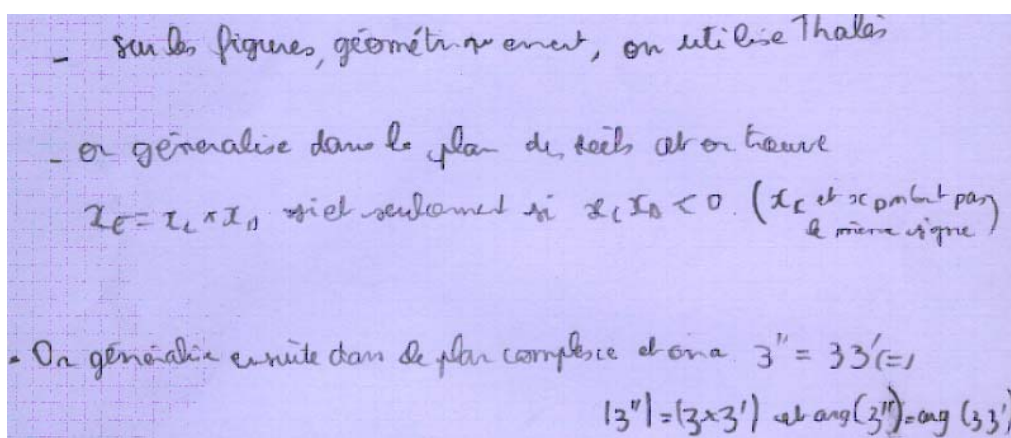 - sur les figures, géométriquement, on utilise Thalès
- on généralise dans le plan des réels et on trouve
x_E = x_C × x_D si et seulement si x_C x_D < 0 (x_C et x_D n'ont pas
le même signe)
- On généralise ensuite dans le plan complexe et on a z" = zz' <=>
|z"| = |z×z'| et arg(z") = arg(zz')